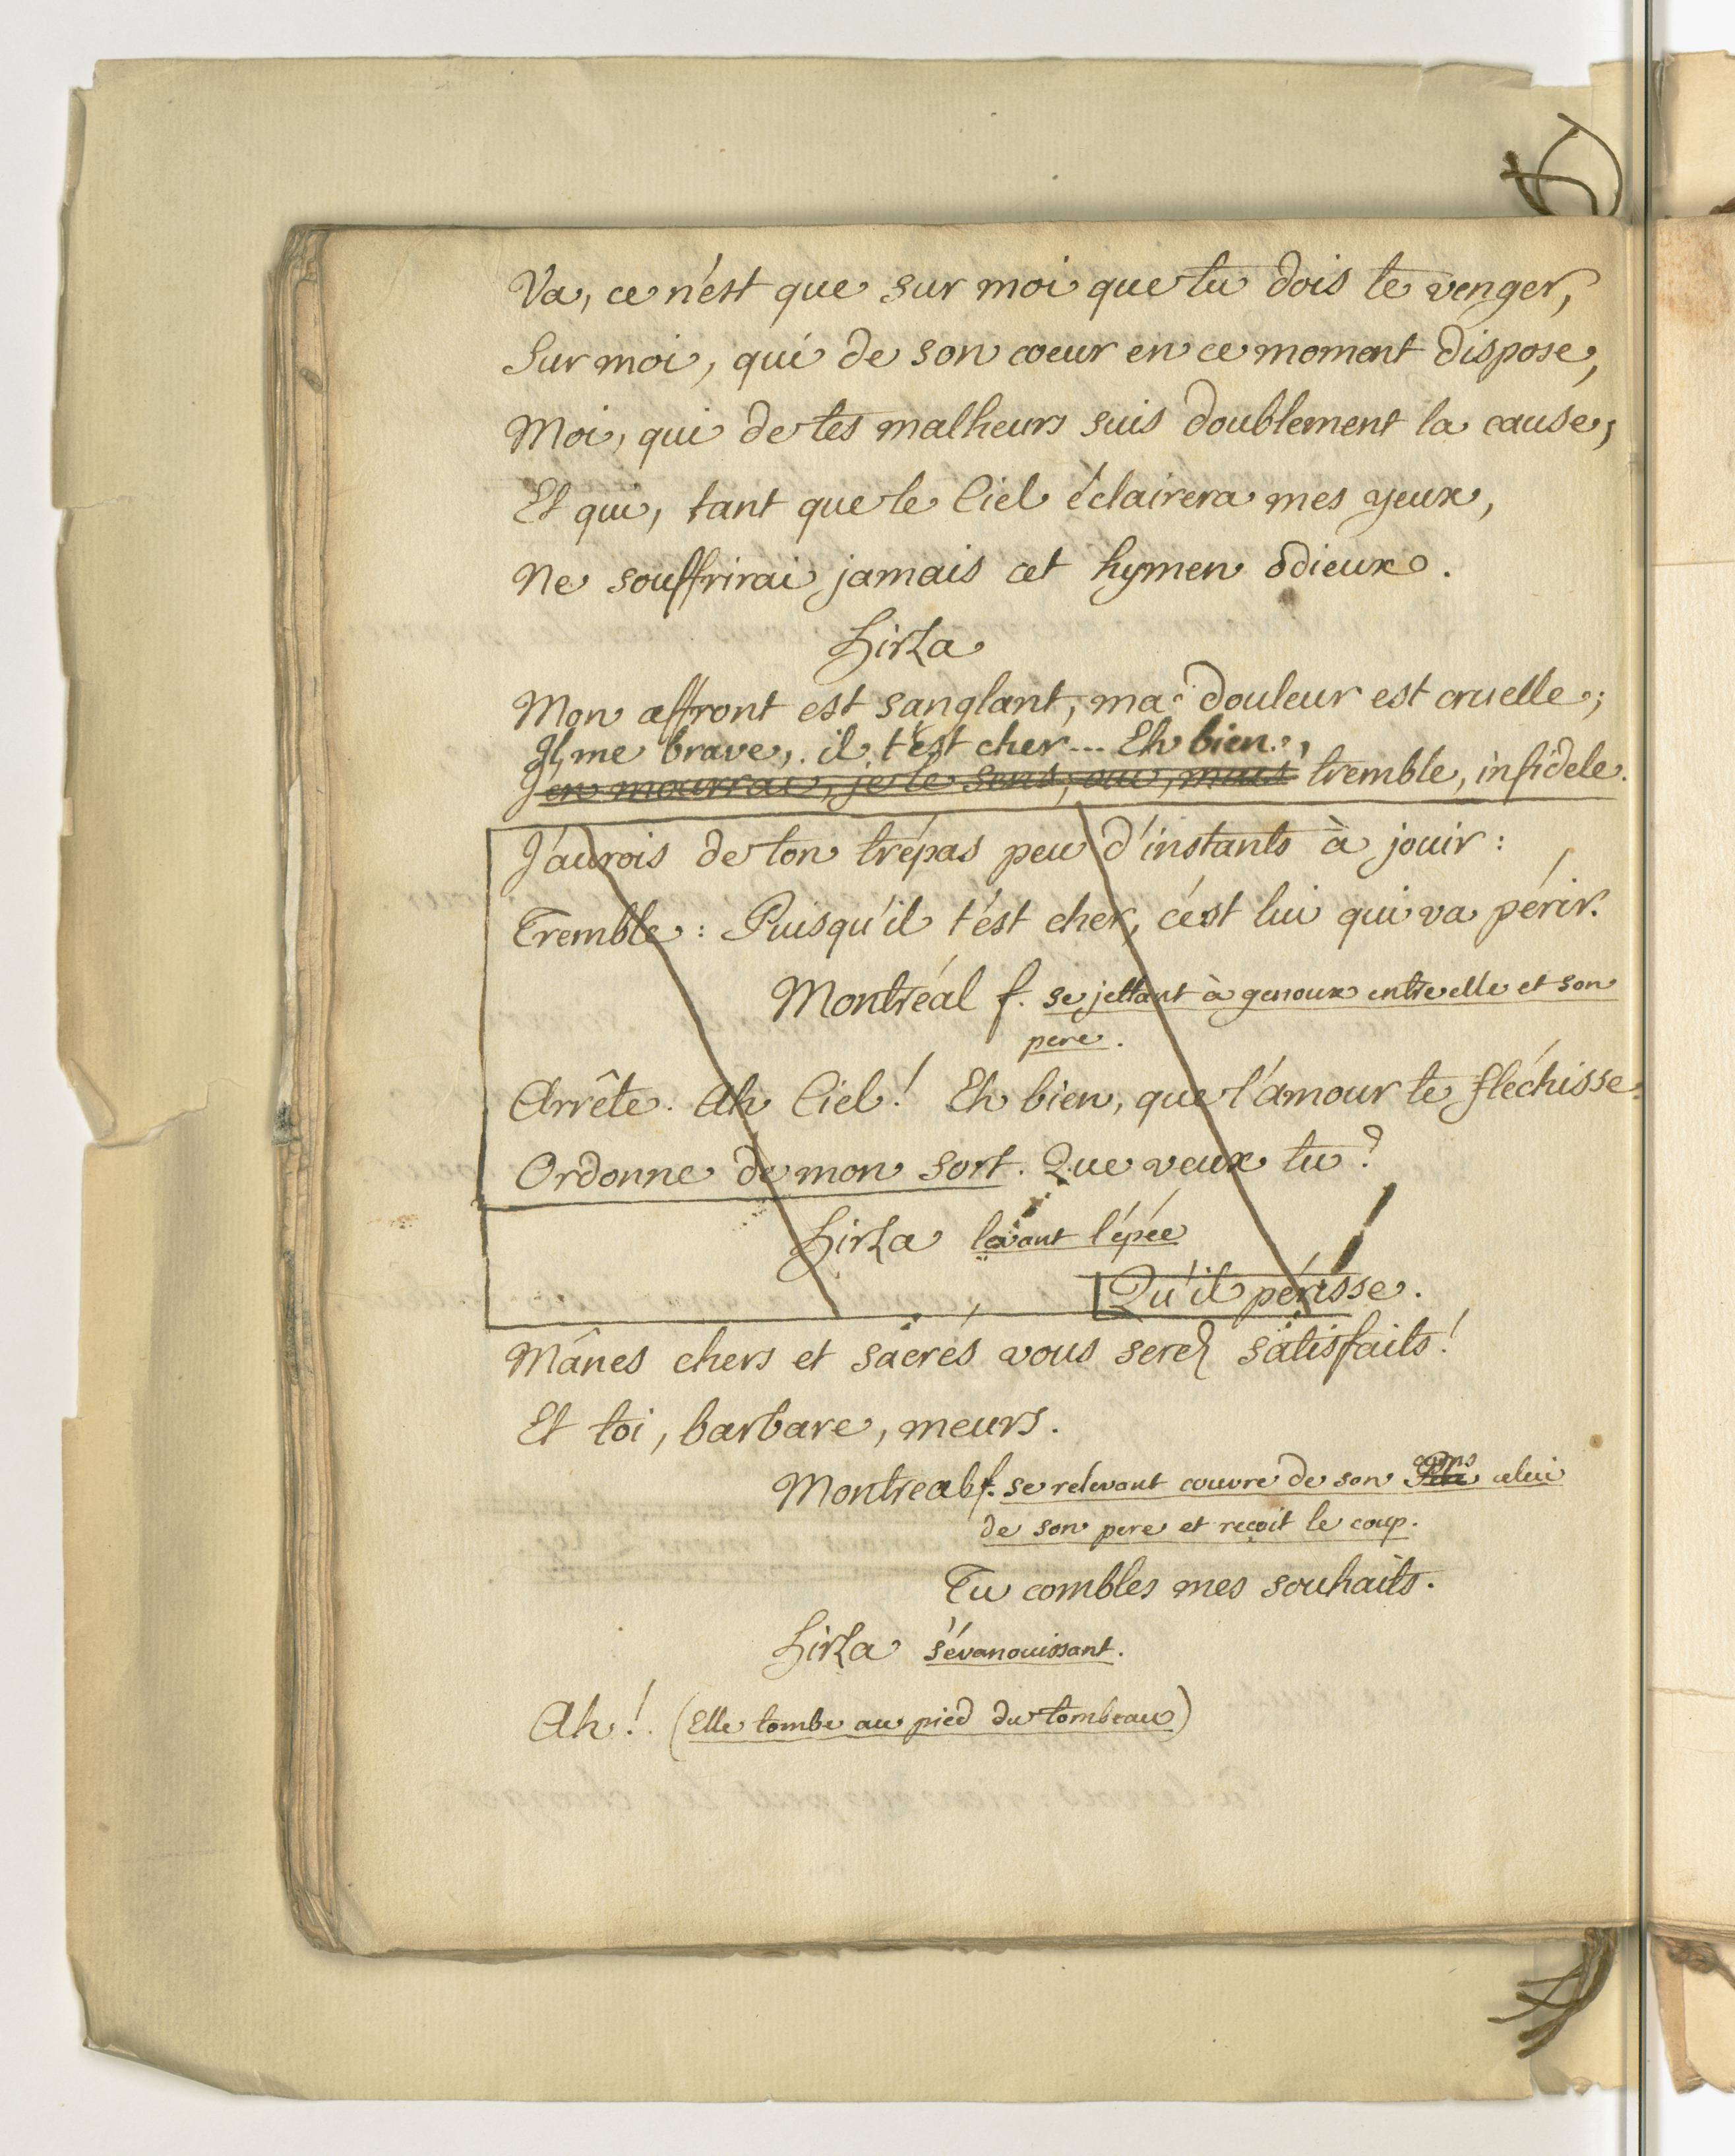 Va, ce n'est que sur moi que tu dois te venger,
Sur moi, qui de son coeur en ce moment dispose,
Moi, qui de tes malheurs suis doublement la cause,
Et qui, tant que le Ciel éclairera mes yeux,
Ne souffrirai jamais cet hymen odieux.
Hirza
Mon affront est sanglant, ma douleur est cruelle;
Il me brave, il t'est cher... Eh bien,
J'en mourrai, je le sens, oui, mais tremble, infidele.
J'aurois de ton trépas peu d'instants à jouir:
Tremble: Puisqu'il t'est cher, c'est lui qui va périr.
Montréal f. se jettant à genoux entre elle et son
pere.
Arrête. Ah Ciel! Eh bien, que l'amour te fléchisse.
Ordonne de mon sort. Que veux tu?
Hirza levant l'épée
Qu'il périsse.
Mânes chers et sacrés vous serez satisfaits!
Et toi, barbare, meurs.
Montreal f. se relevant couvre de son corps celui
de son pere et reçoit le coup.
Tu combles mes souhaits.
Hirza s'évanouissant.
Ah! (Elle tombe au pied du tombeau)